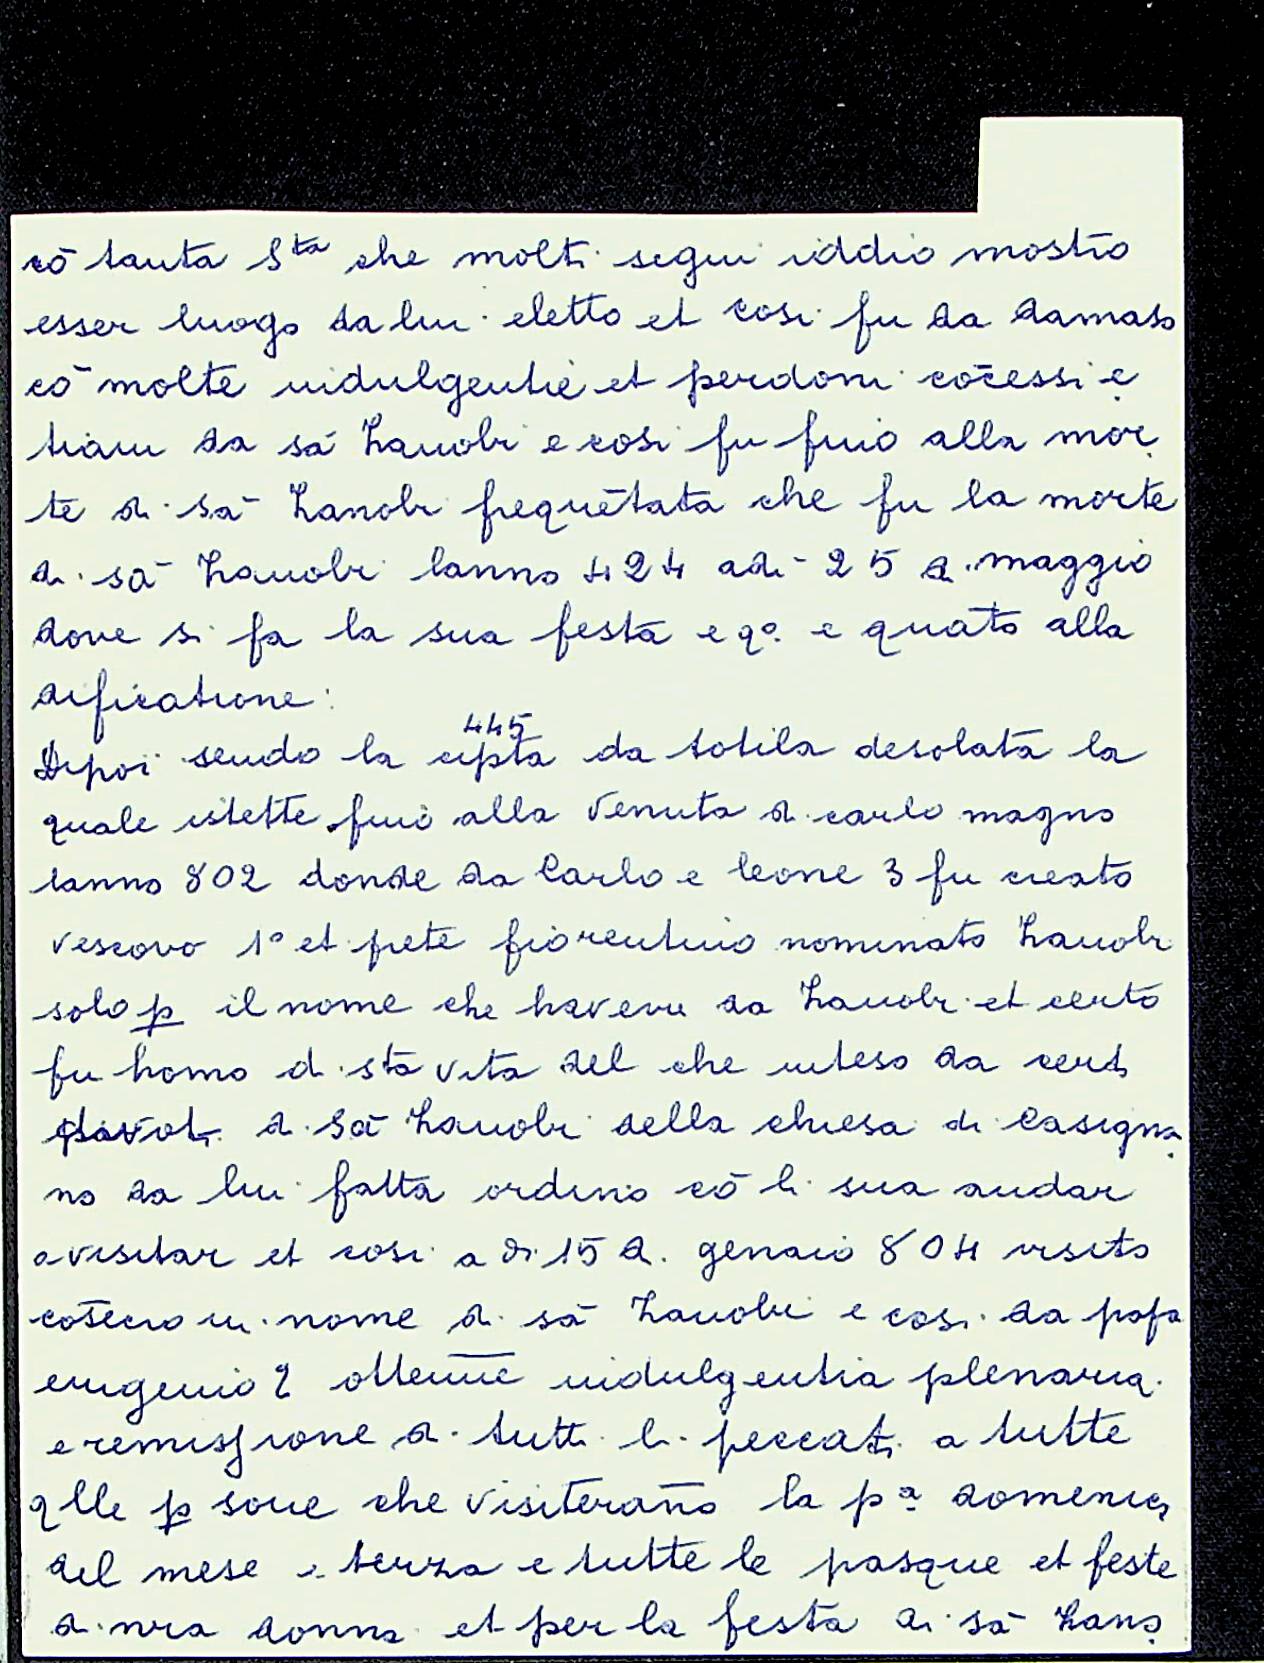 cō tanta Sta che molti segni iddio mostrò
esser luogo da lui eletto et cosi fu da damaso
cō molte indulgentie et perdoni cōcessi e
tiam da sā Zanobi e cosi fu fino alla mor
te di sā Zanobi frequētata che fu la morte
di sā Zanobi lanno 424 adi 25 di maggio
dove si fa la sua festa e qo. e quāto alla
dificatione:
445
Dipoi sendo la cipta da totila desolata la
quale istette fino alla venuta di carlo magno
lanno 802 donde da Carlo e leone 3 fu creato
vescovo 1º et prete fiorentino nominato Zanobi
solo p il nome che haveva da Zanobi et certo
fu homo di stā vita del che inteso da certi
divoti di Sā Zanobi della chiesa di Casigna
no da lui fatta ordinò cō li sua andar
a visitar et cosi a di 15 di genaio 804 visitò
cō nome di sā Zanobi e cosi da papa
eugenio 2 ottenne indulgentia plenaria
e remissione di tutti li peccati a tutte
qlle p sone che visiterāno la pa domenica
del mese e terza e tutte le pasque et feste
di nra donna et per la festa di sā Zano